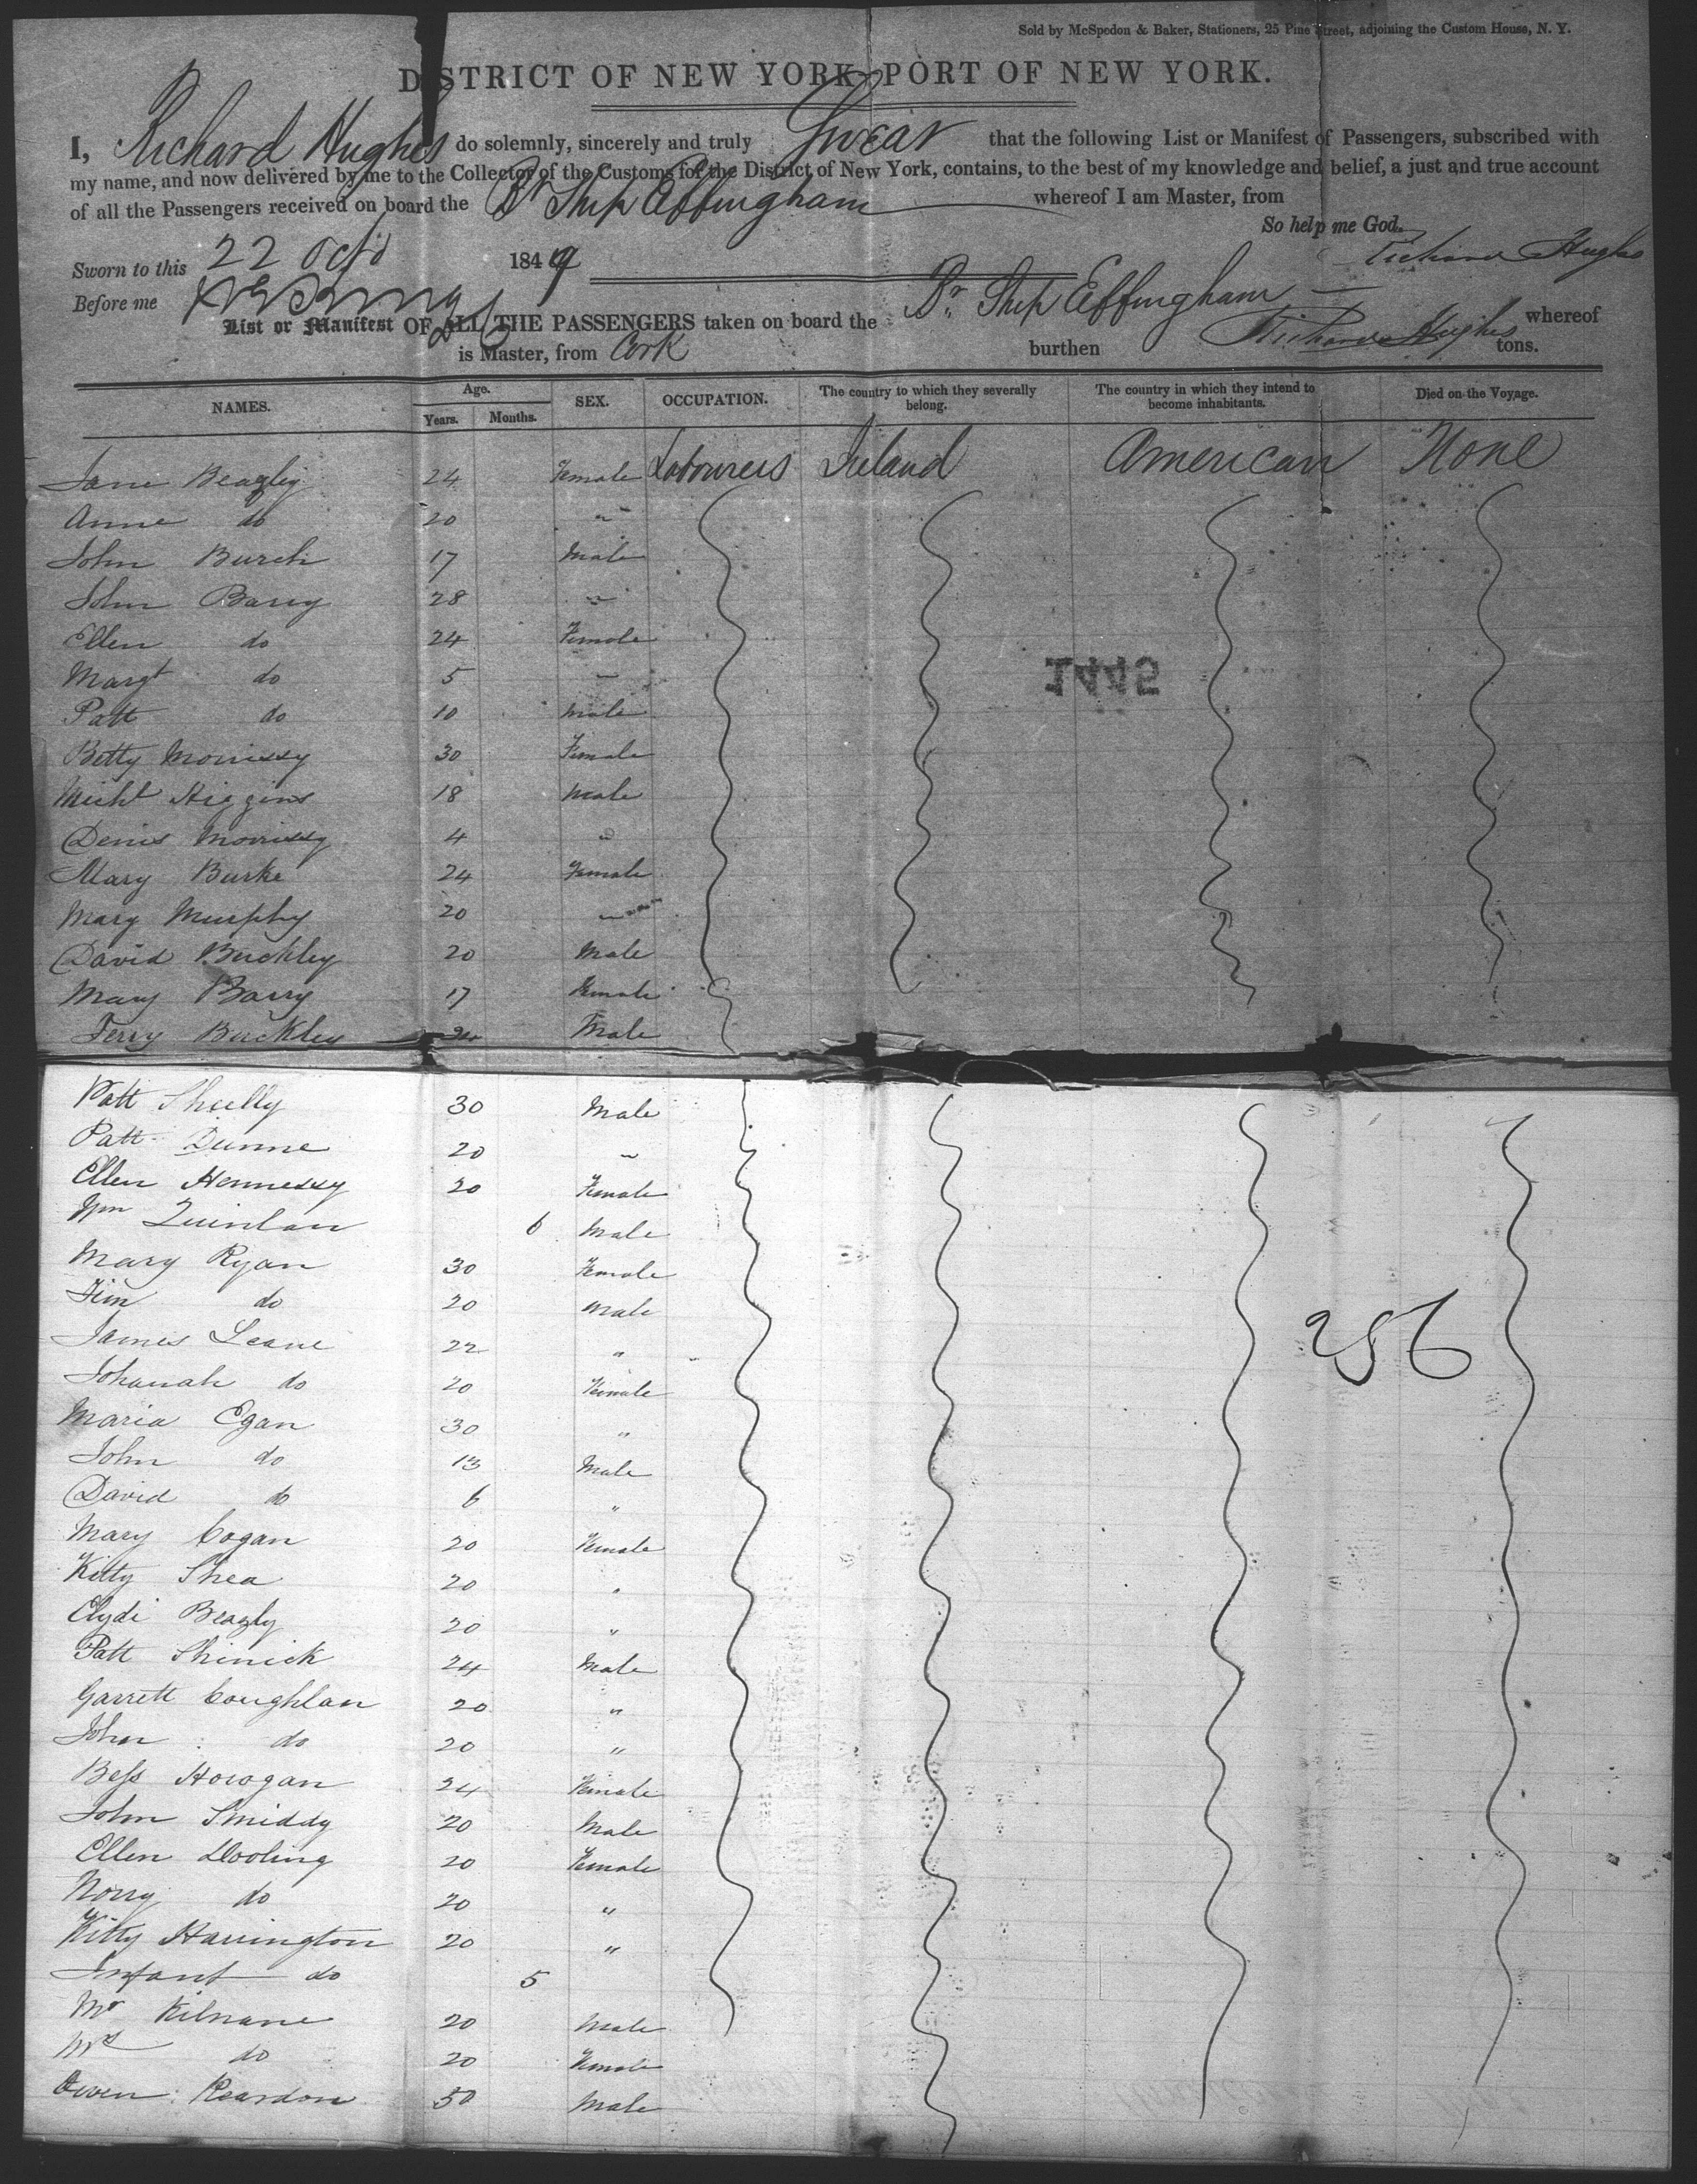 Sold by McSpedon & Baker, Stationers, 25 Pine Street, adjoining the Custom House, N. Y.
DISTRICT OF NEW YORK—PORT OF NEW YORK.
I, Richard Hughes do solemnly, sincerely and truly Swear that the following List or Manifest of Passengers, subscribed with
my name, and now delivered by me to the Collector of the Customs for the District of New York, contains, to the best of my knowledge and belief, a just and true account
of all the Passengers received on board the Br Ship Effingham whereof I am Master, from
So help me God.
Sworn to this 22 Oct 1849 Richard Hughes
Before me
List or Manifest OF ALL THE PASSENGERS taken on board the Br Ship Effingham whereof
Richard Hughes
is Master, from Cork burthen tons.
NAMES. Age. Years. Months. SEX. OCCUPATION. The country to which they severally belong. The country in which they intend to become inhabitants. Died on the Voyage.
Jane Beagly 24 Female Labourers Ireland American None
Anne do 20 "
John Burch 17 Male
John Barry 28 "
Ellen do 24 Female
Margt do 5 "
1442
Patt do 10 Male
Betty Morrissy 30 Female
Michl Higgins 18 Male
Denis Morrissy 4 "
Mary Burke 24 Female
Mary Murphy 20 "
David Buckley 20 Male
Mary Barry 17 Female
Jerry Buckley 24 Male
Patt Sheelly 30 Male
Patt Dunne 20 "
Ellen Hennessy 20 Female
Wm Quinlan 6 Male
Mary Ryan 30 Female
Tim do 20 Male
James Leane 22 "
256
Johanah do 20 Female
Maria Egan 30 "
John do 13 Male
David do 6 "
Mary Cogan 20 Female
Kitty Shea 20 "
Clydi Beazly 20 "
Patt Shinick 24 Male
Garrett Coughlan 20 "
John do 20 "
Bess Horogan 24 Female
John Smiddy 20 Male
Ellen Dooling 20 Female
Norry do 20 "
Kitty Harrington 20 "
Infant do 5
Mr Kilnane 20 Male
Mrs do 20 Female
Owen Reardon 50 Male